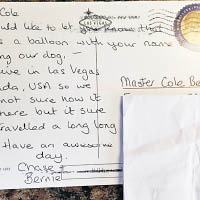 Cole
ould like to let you know that
s a balloon with your name
ng our dog. –
ive in Las Vegas
ada, USA so we
not sure how it
here but it sure
travelled a long long
Have an awesome
day.
Chase +
Bernie
Master Cole Be
LAS VEGAS